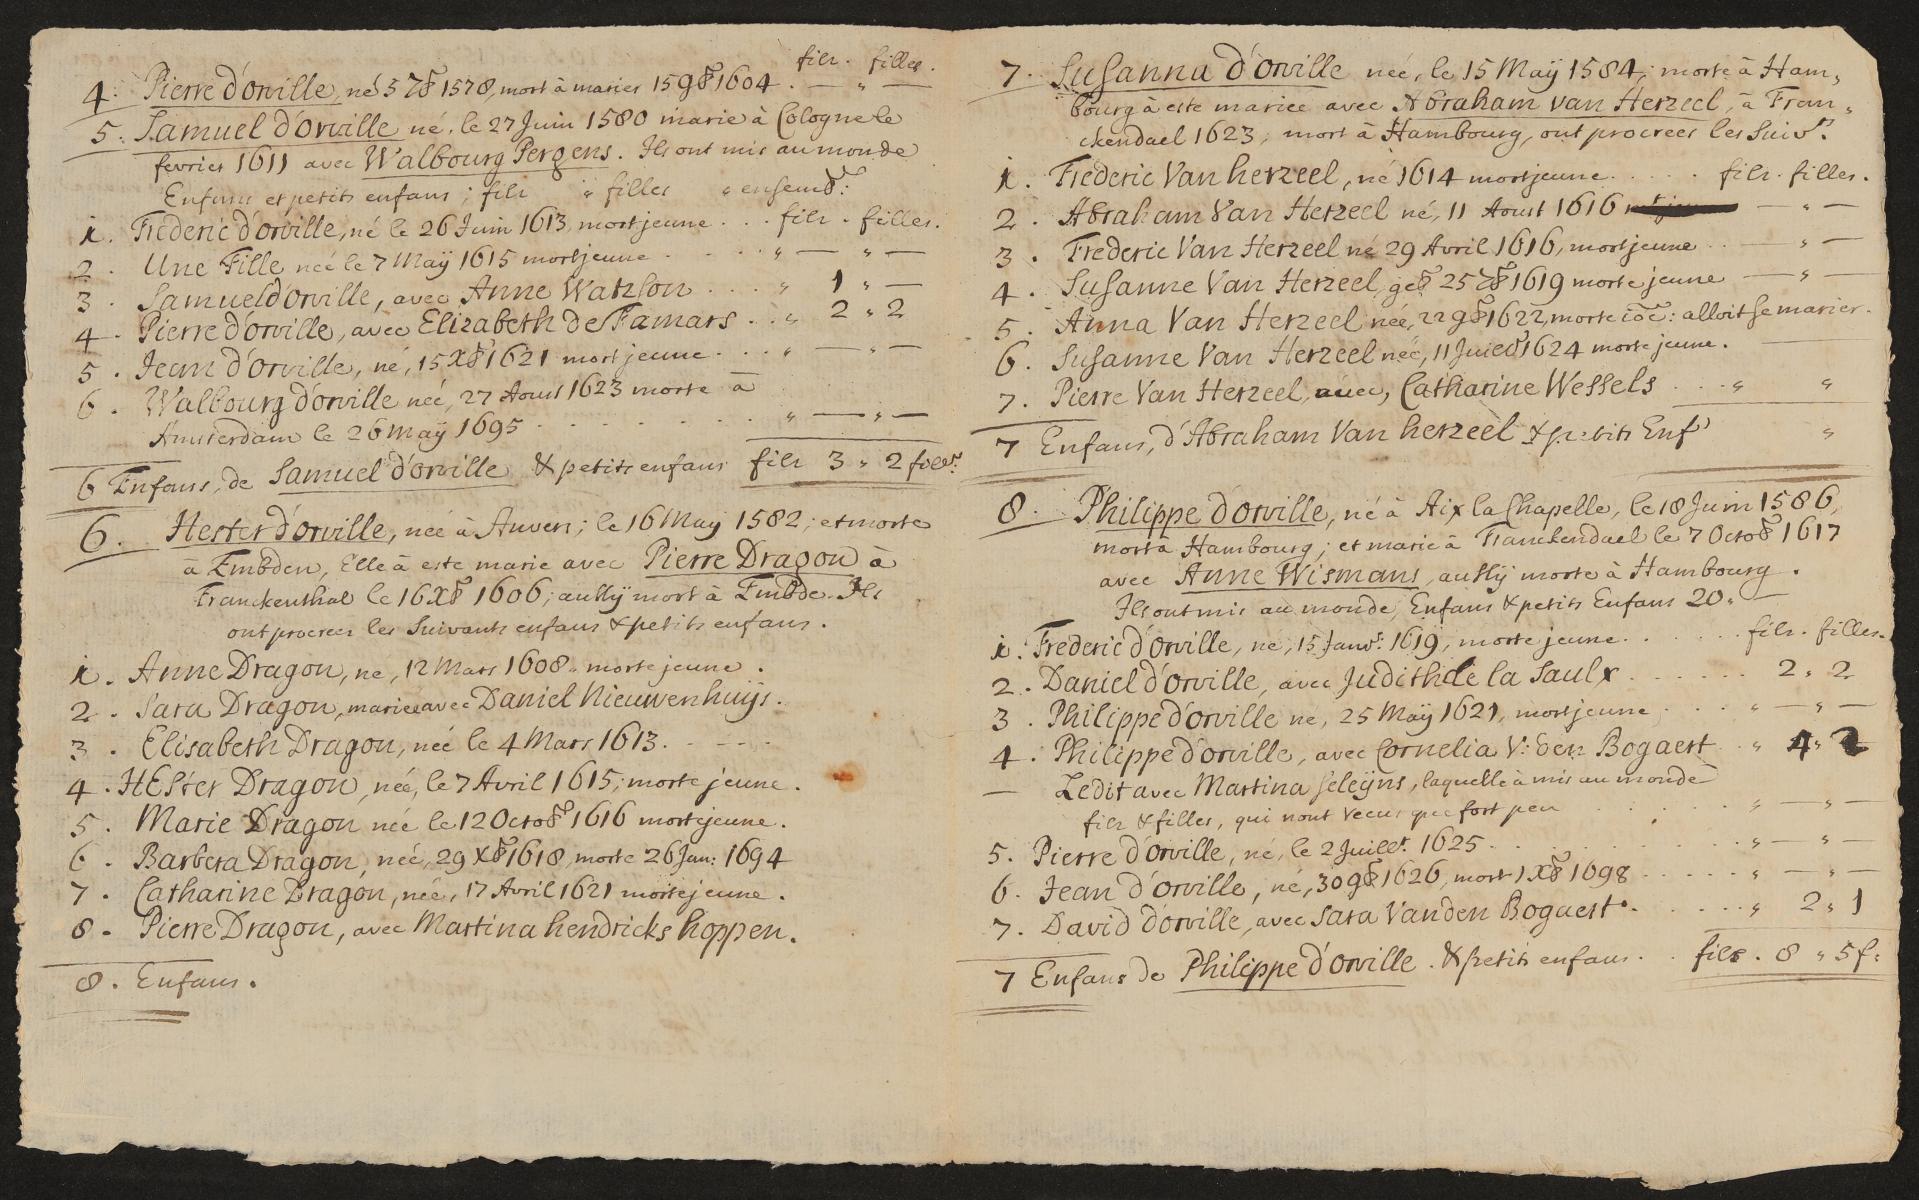 fils. filles.
4. Pierre d'Orville, né 5 7bre 1578, mort à marier 15 9bre 1604. — " —
5. Samuel d'Orville né, le 27 Juin 1580 marie à Cologne le
fevrier 1611 avec Walbourg Pergens. Ils ont mis au monde
Enfans et petits enfans; fils " filles " ensemb:
1. Frederic d'orville, né le 26 Juin 1613, mort jeune . . . fils . filles.
2. Une Fille neé le 7 Maÿ 1615 mort jeune . . . . . " — " —
3. Samuel d'orville, avec Anne Watzson . . . . " 1 " —
4. Pierre d'orville, avec Elizabeth de Famars . . " 2 " 2
5. Jean d'orville, né, 15 Xbr 1621 mort jeune . . . " — " —
6. Walbourg d'orville neé, 27 Aoust 1623 morte à
Amsterdam le 26 Maÿ 1695 . . . . . . . " — " —
6 Enfans, de Samuel d'orville & petits enfans fils 3 " 2 filles.
6. Hester d'orville, neé à Anvers; le 16 Maÿ 1582; et morte
à Embden, Elle à este marie avec Pierre Dragon à
Franckenthal le 16 Xbr 1606; aussÿ mort à Embde. Ils
ont procrees les Suivants enfans & petits enfans.
1. Anne Dragon, ne, 12 Mars 1608. morte jeune.
2. Sara Dragon, mariee avec Daniel Nieuwenhuijs.
3. Elisabeth Dragon, neé le 4 Mars 1613. - - - -
4. HEster Dragon, neé, le 7 Avril 1615; morte jeune.
5. Marie Dragon neé le 12 Octobr 1616 morte jeune.
6. Barbera Dragon, neé, 29 Xbr 1618, morte 26 Jan: 1694
7. Catharine Dragon, neé, 17 Avril 1621 morte jeune.
8. Pierre Dragon, avec Martina hendricks hoppen.
8. Enfans.
7. Susanna d'Orville neé, le 15 Maÿ 1584; morte à Ham„
bourg à este mariee avec Abraham van Herzeel, à Fran„
ckendael 1623; mort à Hambourg, ont procrees les Suivts
1. Frederic Van herzeel, né 1614 mort jeune . . . . . fils. filles.
2. Abraham Van Herzeel né, 11 Aoust 1616 — " —
3. Frederic Van Herzeel né 29 Avril 1616, mort jeune . . — " —
4. Susanne Van Herzeel, geb 25 7br 1619 morte jeune — " —
5. Anna Van Herzeel neé, 22 9br 1622, morte : alloit se marier.
6. Susanne Van Herzeel neé, 11 Juied 1624 morte jeune. —
7. Pierre Van Herzeel, avec, Catharine Wessels . . . " "
7 Enfans, d'Abraham Van herzeel & petits Enfs "
8. Philippe d'orville, né à Aix la Chapelle, le 18 Juin 1586,
mort à Hambourg; et marie à Franckendael le 7 Octobr 1617
avec Anne Wismans, aussÿ morte à Hambourg.
Ils ont mis au monde, Enfans & petits Enfans 20. —
1. Frederic d'orville, né, 15 Janvr: 1619, morte jeune . . . . . . fils. filles.
2. Daniel d'orville, avec Judith de la Saulx . . . . . . 2 " 2
3. Philippe d'orville ne, 25 Maÿ 1621, mort jeune . . . " — " —
4. Philippe d'orville, avec Cornelia V: den Bogaert " 4 " 2
— Ledit avec Martina Seleÿns, laquelle à mis au monde
fils & filles, qui nont vecus que fort peu . . . . . . " — " —
5. Pierre d'orville, né, le 2 Juillt. 1625 . . . . . . . . . " — " —
6. Jean d'orville, né, 30 9br 1626, mort 1 Xbr 1698 . . . . . " — " —
7. David d'orville, avec Sara Vanden Bogaert. . . . . . " 2 " 1
7 Enfans de Philippe d'orville . & petits enfans . . fils. 8 " 5 f: